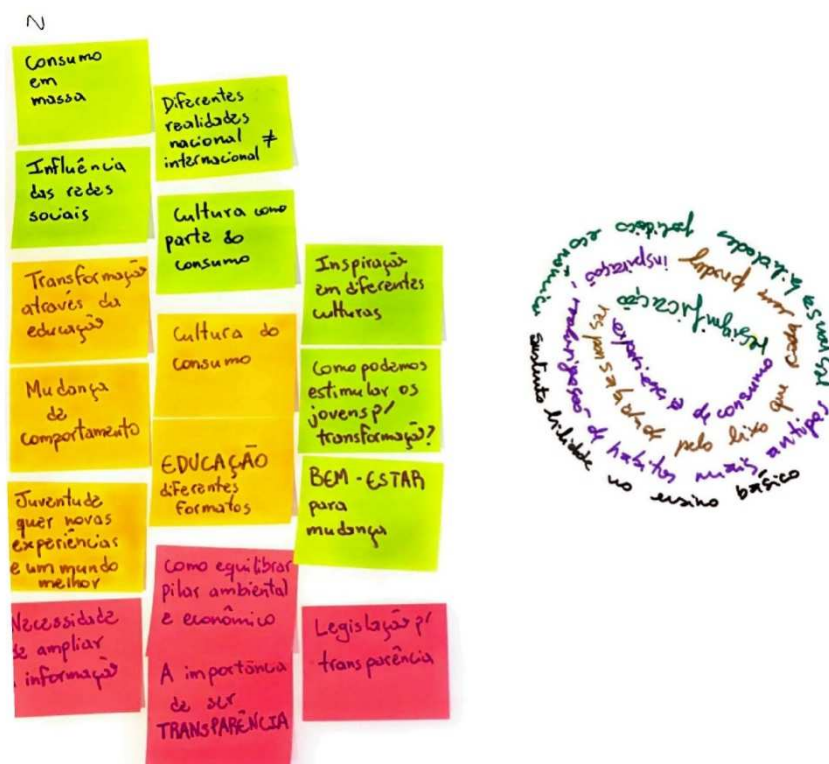 N
Consumo
em
massa
Influência
das redes
sociais
Transformação
através da
educação
Mudança
de
comportamento
Juventude
quer novas
experiências
e um mundo
melhor
Necessidade
de ampliar
informação
Diferentes
realidades
nacional ≠
internacional
Cultura como
parte do
consumo
Cultura do
consumo
EDUCAÇÃO
diferentes
formatos
Como equilibrar
pilar ambiental
e econômico
A importância
de ser
TRANSPARÊNCIA
Inspiração
em diferentes
culturas
Como podemos
estimular os
jovens p/
transformação?
BEM-ESTAR
para
mudança
Legislação p/
transparência
ressignificação
de consumo
responsabilidade pelo lixo que
inspiração
de hábitos mais antigos
político econômico
sustentabilidade no ensino básico